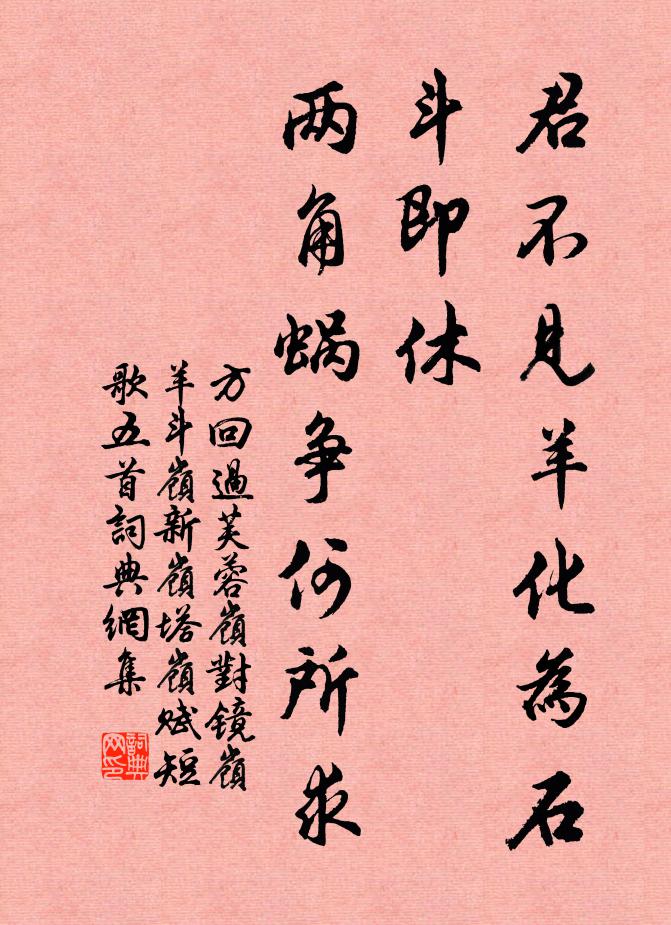 君不見羊化為石
斗即休
两角蝸争何所求
方回過芙蓉嶺對镜嶺
羊斗嶺新嶺塔嶺赋短
歌五首詞典網集
詞典网印